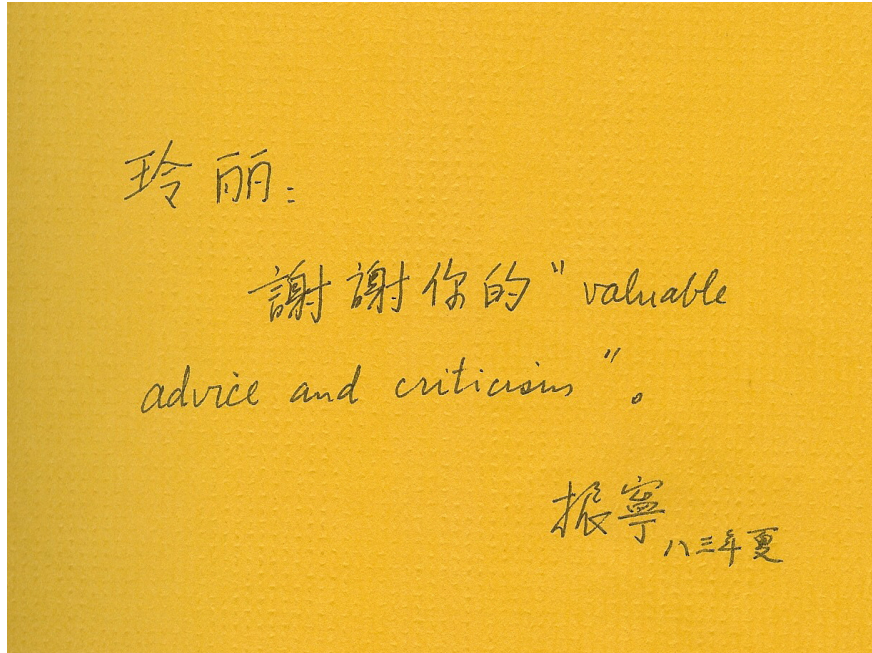 玲丽：
謝謝你的"valuable
advice and criticism"。
振寧
八三年夏